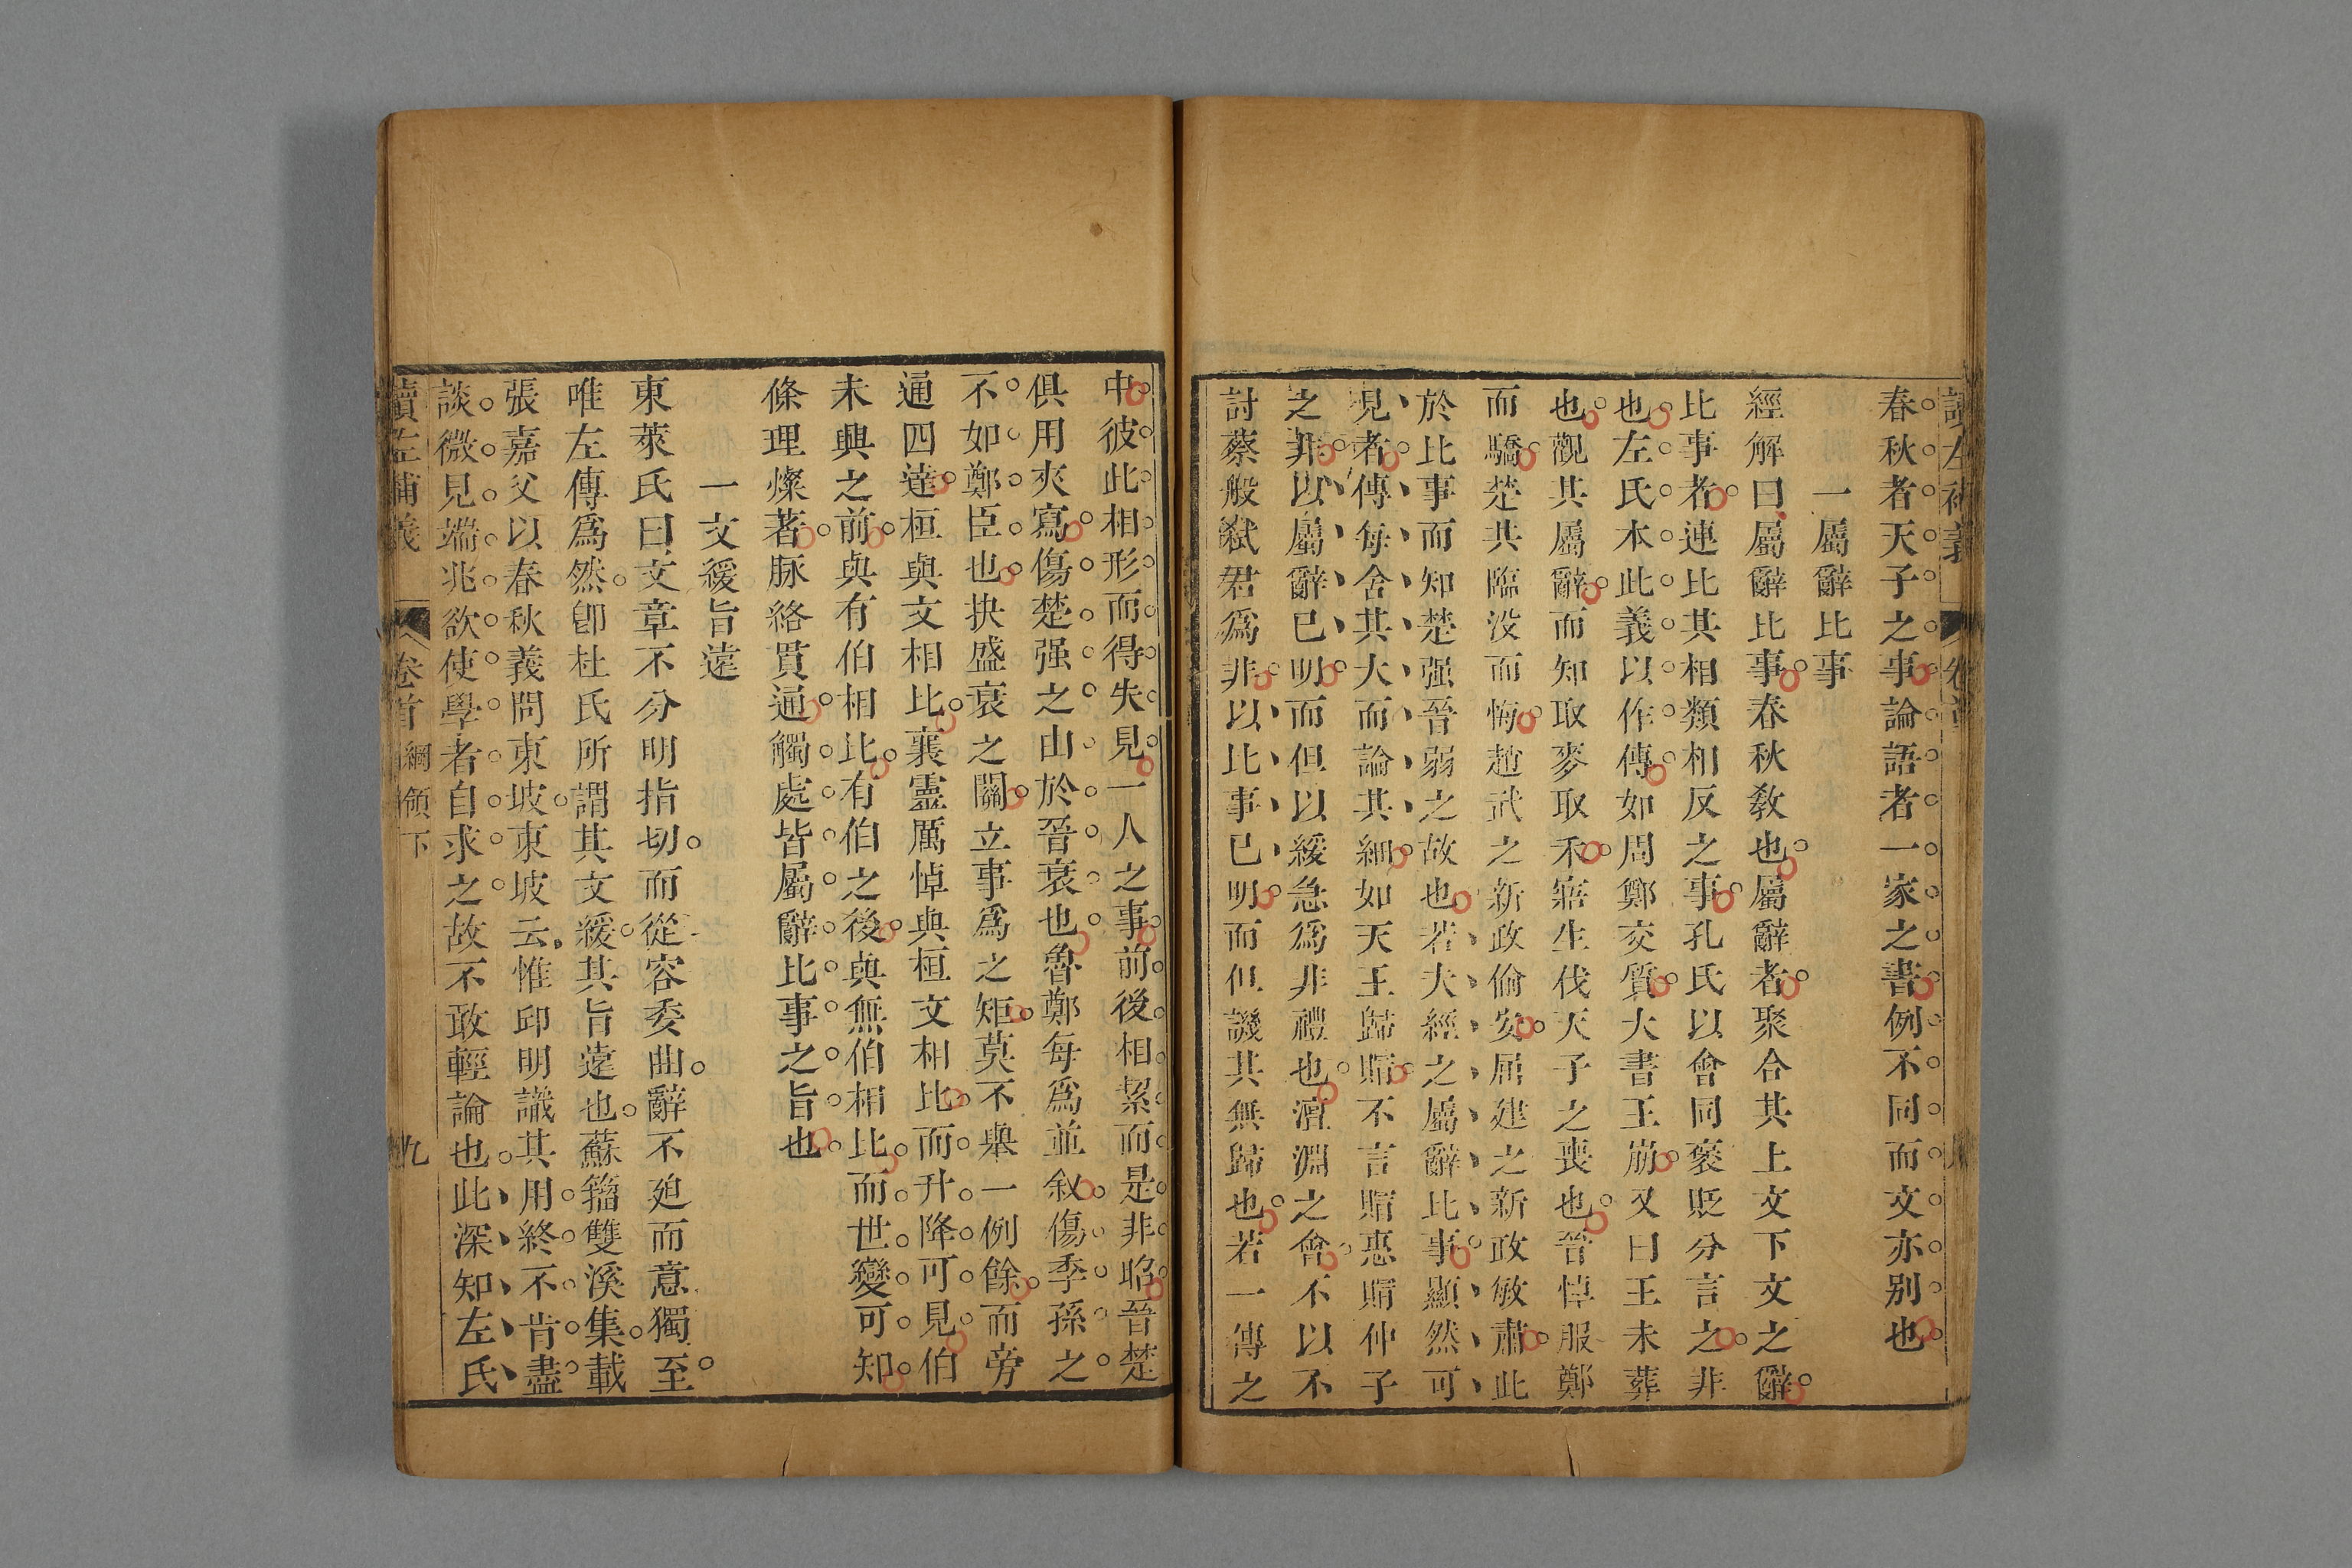 春秋者天子之事論語者一家之書例不同而文亦别也
一屬辭比事
經解曰屬辭比事春秋敎也屬辭者聚合其上文下文之辭
比事者連比其相類相反之事孔氏以會同褒貶分言之非
也左氏本此義以作傳如周鄭交質大書王崩又曰王未葬
也觀其屬辭而知取麥取禾寤生伐天子之喪也晉悼服鄭
而驕楚共臨没而悔趙武之新政偷安屈建之新政敏肅此
於比事而知楚强晉弱之故也若夫經之屬辭比事顯然可
見者傳每舍其大而論其細如天王歸賵不言賵惠賵仲子
之非以屬辭已明而但以緩急爲非禮也澶淵之會不以不
討蔡般弑君爲非以比事已明而但譏其無歸也若一傳之
中彼此相形而得失見一人之事前後相絜而是非昭晉楚
俱用夾寫傷楚强之由於晉衰也魯鄭每爲並叙傷季孫之
不如鄭臣也抉盛衰之關立事爲之矩莫不舉一例餘而旁
通四達桓與文相比襄靈厲悼與桓文相比而升降可見伯
未興之前與有伯相比有伯之後與無伯相比而世變可知
條理燦著脉絡貫通觸處皆屬辭比事之旨也
一文緩旨遠
東萊氏曰文章不分明指切而從容委曲辭不廹而意獨至
唯左傳爲然卽杜氏所謂其文緩其旨遠也蘇籀雙溪集載
張嘉父以春秋義問東坡東坡云惟邱明識其用終不肯盡
談微見端兆欲使學者自求之故不敢輕論也此深知左氏
讀左補義 卷首 綱領下 九